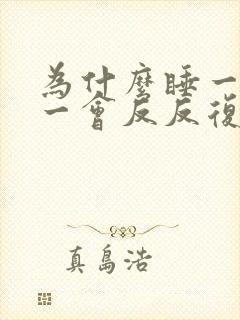 為什麼睡一
一會反反復
真島浩